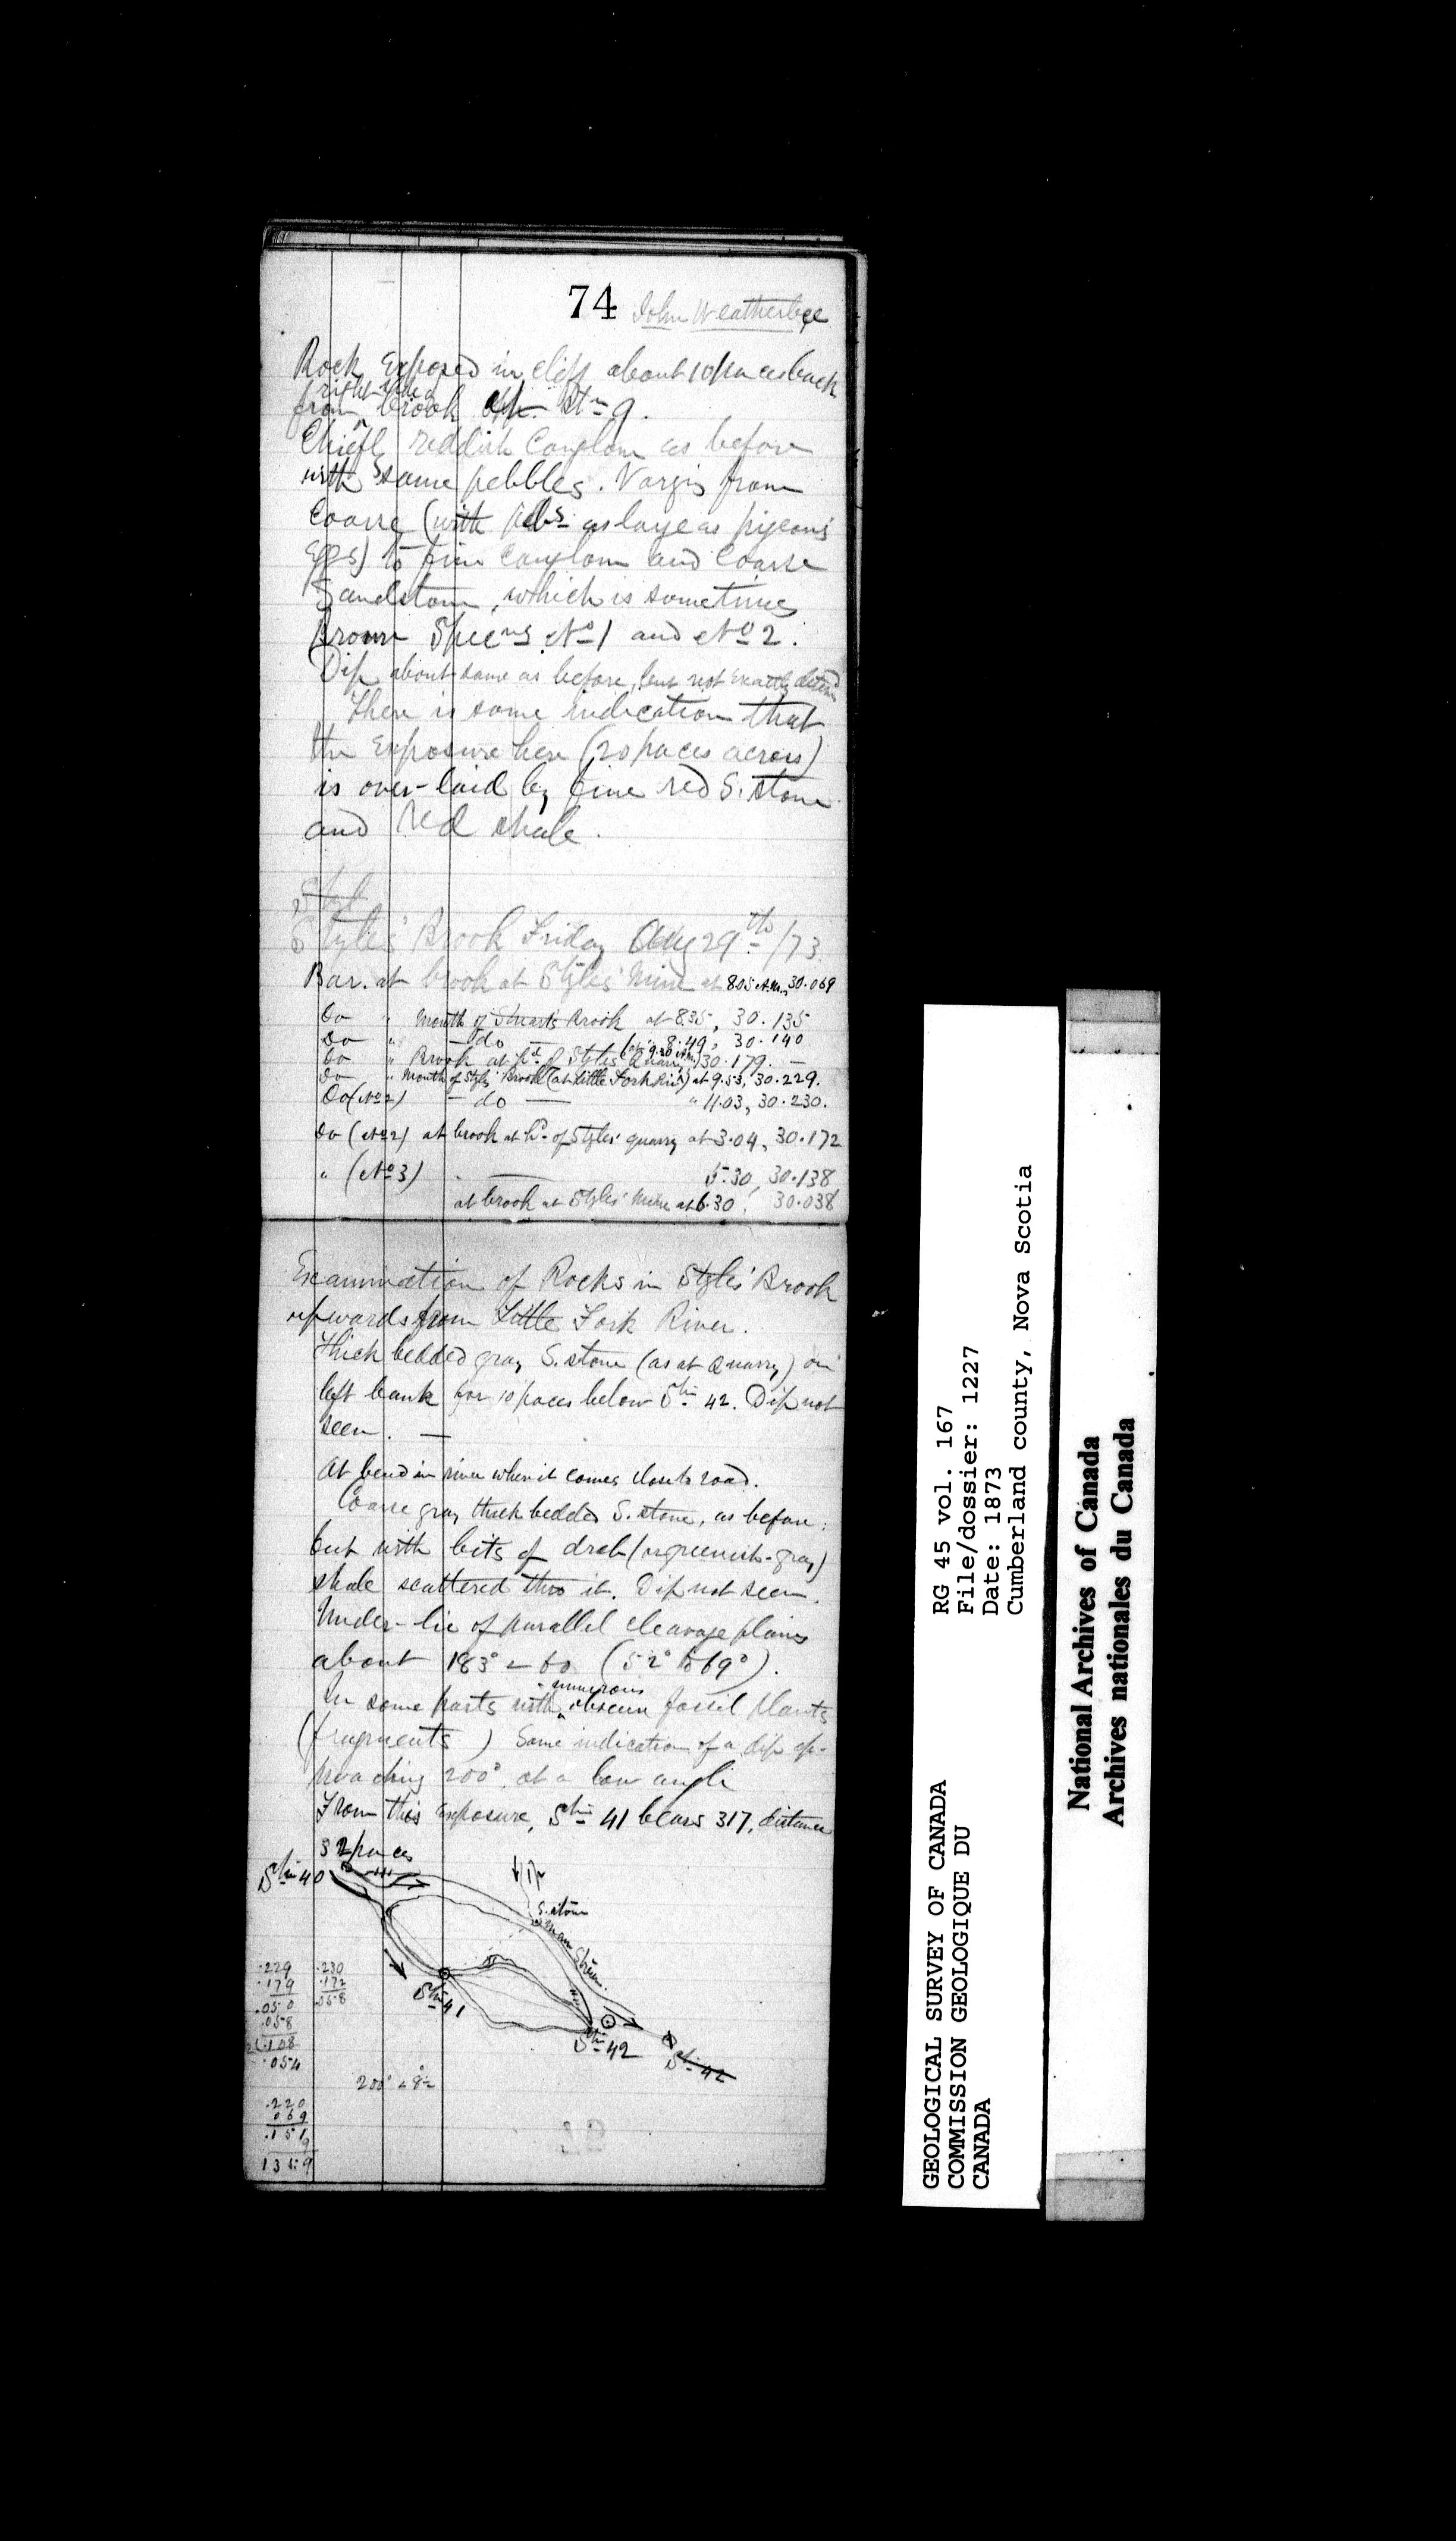 74 John Weatherbee
Rock exposed in cliff about 10 paces back
right side
from brook opp. Stn 9.
Chiefly reddish conglom as before
with same pebbles. Varyis from
coarse (with pebs as large as pigeons'
eggs) to fine conglom and coarse
Sandstone, which is sometimes
Brown Specns No 1 and No 2.
Dip about same as before, but not exactly
There is some indication that
the exposure here (20 paces across)
is over-laid by fine red S. stone
and red shale.
Styles' Brook Friday Aug 29th /73.
Bar. at brook at Styles' Mine at 8.05 A.M., 30.069
Do " Mouth of Stuart's Brook at 8.35, 30.135
Do " — do — 8.49, 30.140
Do " Brook at hd. of Styles' Quarry (at 9.30 A.M.) 30.179. —
Do " Mouth of Styles' Brook (at Little Fork River) at 9.53, 30.229.
Do (No 2) — do — " 11.03, 30.230.
Do (No 2) at brook at hd. of Styles' quarry at 3.04, 30.172
" (No 3) — 5.30, 30.138
at brook at Styles' Mine at 6.30, 30.038
Examination of Rocks in Styles' Brook
upwards from Little Fork River.
Thick bedded gray S. stone (as at Quarry) on
left bank for 10 paces below Stn 42. Dip not
seen. —
At bend in river when it comes close to road.
Coarse gray thick bedded S. stone, as before;
but with bits of drab (or greenish-gray)
shale scattered thro it. Dip not seen.
Under-lie of parallel cleavage plains
about 183° ∠ 60 (52° to 69°).
numerous
In some parts with obscure fossil plants
(fragments) Some indication of a dip ap-
proaching 200° at a low angle
From this exposure, Stn 41 bears 317, distance
32 paces
Stn 40
S. stone
Main Stream.
Stn 41
Stn 42
Stn 42
.229 .230
.179 .172
.050 .058
.058
.108
.054
200° ∠ 8°
.220
.069
.151
9
1359
GEOLOGICAL SURVEY OF CANADA
COMMISSION GEOLOGIQUE DU
CANADA
RG 45 vol. 167
File/dossier: 1227
Date: 1873
Cumberland county, Nova Scotia
National Archives of Canada
Archives nationales du Canada